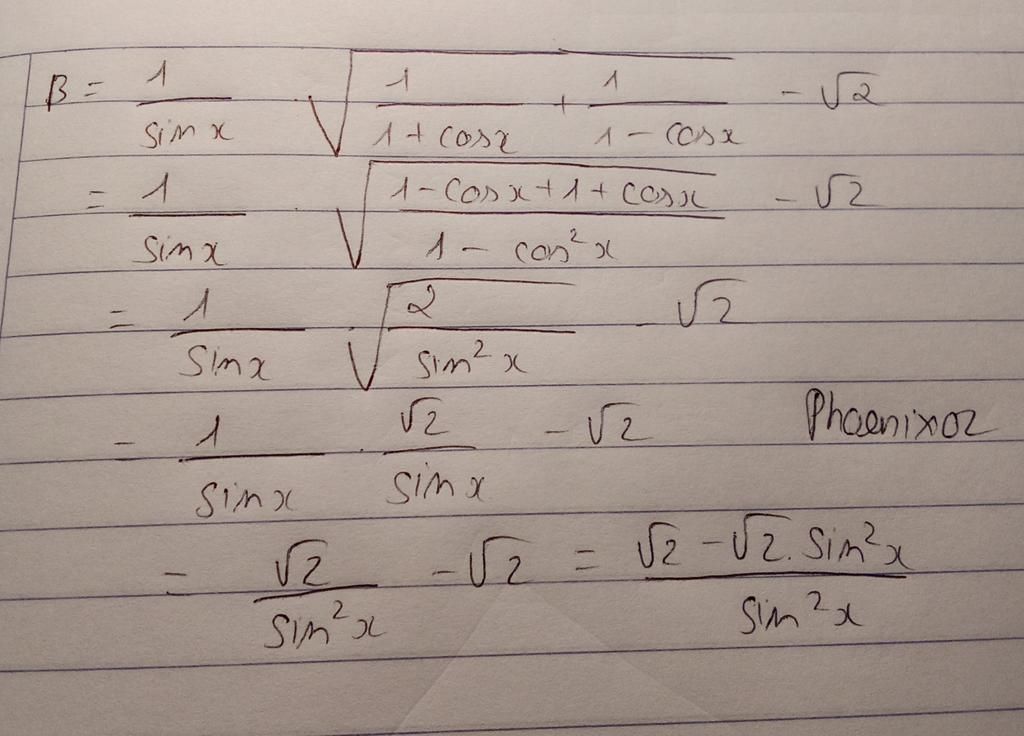 B = 1/sin x · √(1/(1 + cos x) + 1/(1 - cos x)) - √2
= 1/sin x · √((1 - cos x + 1 + cos x)/(1 - cos² x)) - √2
= 1/sin x · √(2/sin² x) - √2
= 1/sin x · √2/sin x - √2 Phoenixoz
= √2/sin² x - √2 = (√2 - √2 . sin² x)/sin² x